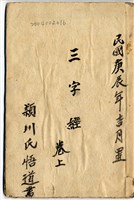 民國庚辰年吉月置
三字經
卷上
潁川氏悟道書